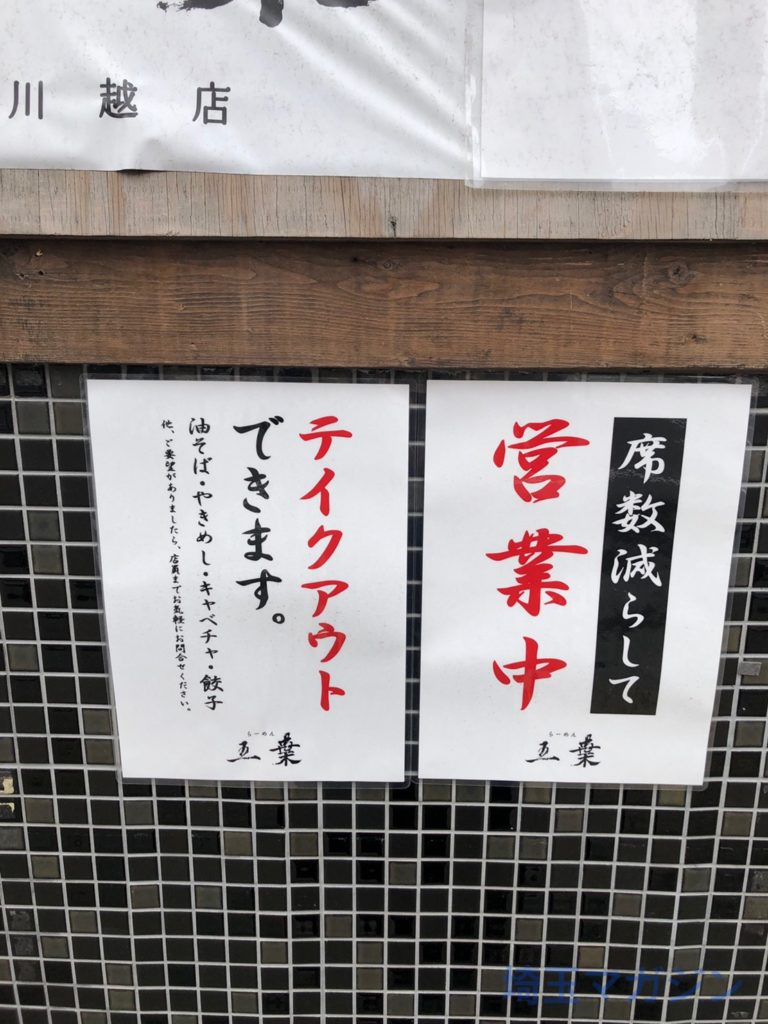 川越店
席数減らして
営業中
らーめん
五葉
テイクアウト
できます。
油そば・やきめし・キャベチャ・餃子
他、ご要望がありましたら、店員までお気軽にお問合せください。
らーめん
五葉
埼玉マガジン